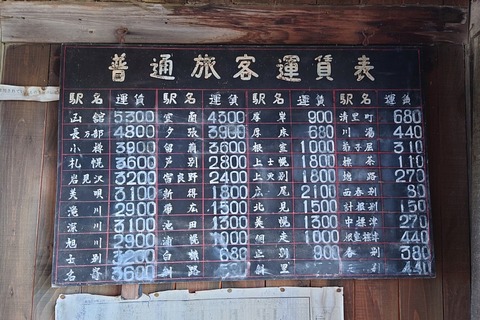 普通旅客運賃表
駅名 運賃 駅名 運賃 駅名 運賃 駅名 運賃
函館 5300 室蘭 4300 厚岸 900 清里町 680
長万部 4800 夕張 3900 厚床 680 川湯 440
小樽 3900 留萌 3600 根室 1000 弟子屈 310
札幌 3600 芦別 2800 上士幌 1800 標茶 110
岩見沢 3200 富良野 2400 上 別 1800 塘路 270
美唄 3100 新得 1800 広尾 2100 西春別 80
滝川 2900 帯広 1500 北見 1500 計根別 150
深川 3100 池田 1300 美幌 1300 中標津 270
旭川 2900 浦幌 1000 網走 1000 根室標津 440
士別 3200 白糠 680 斜里 900 春別 380
名寄 3600 釧路